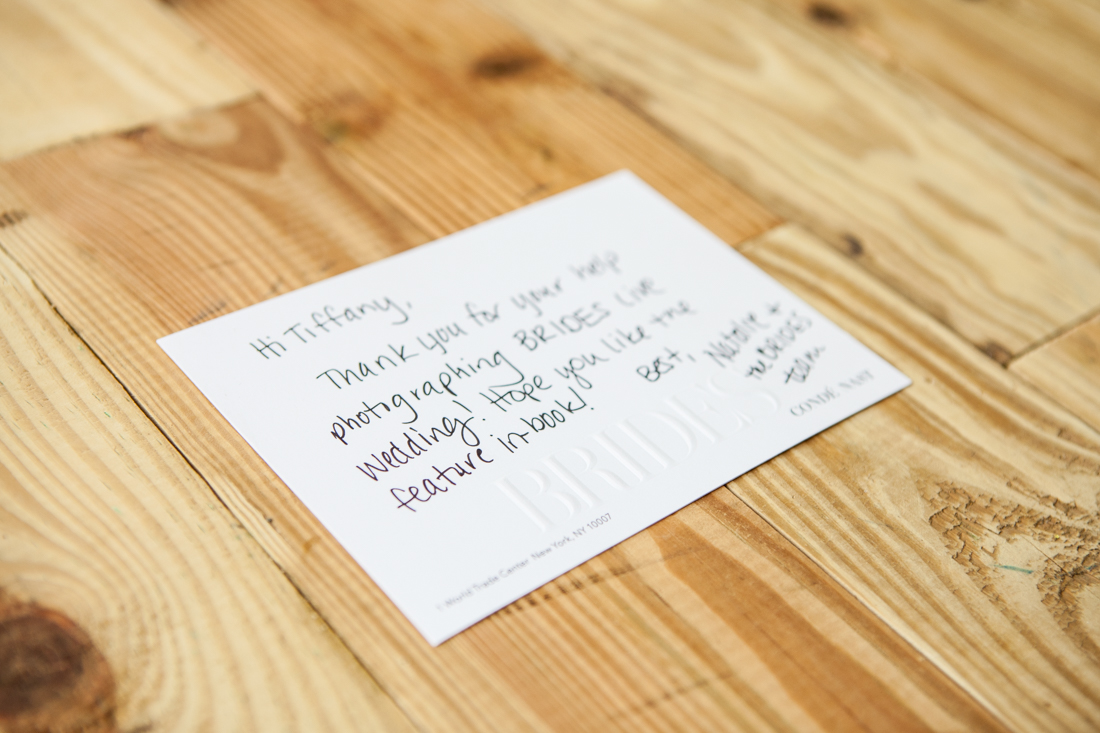 Hi Tiffany,
Thank you for your help
photographing BRIDES Live
Wedding! Hope you like the
feature in-book!
Best,
Natalie +
the BRIDES
team
BRIDES
CONDÉ NAST
1 World Trade Center New York, NY 10007